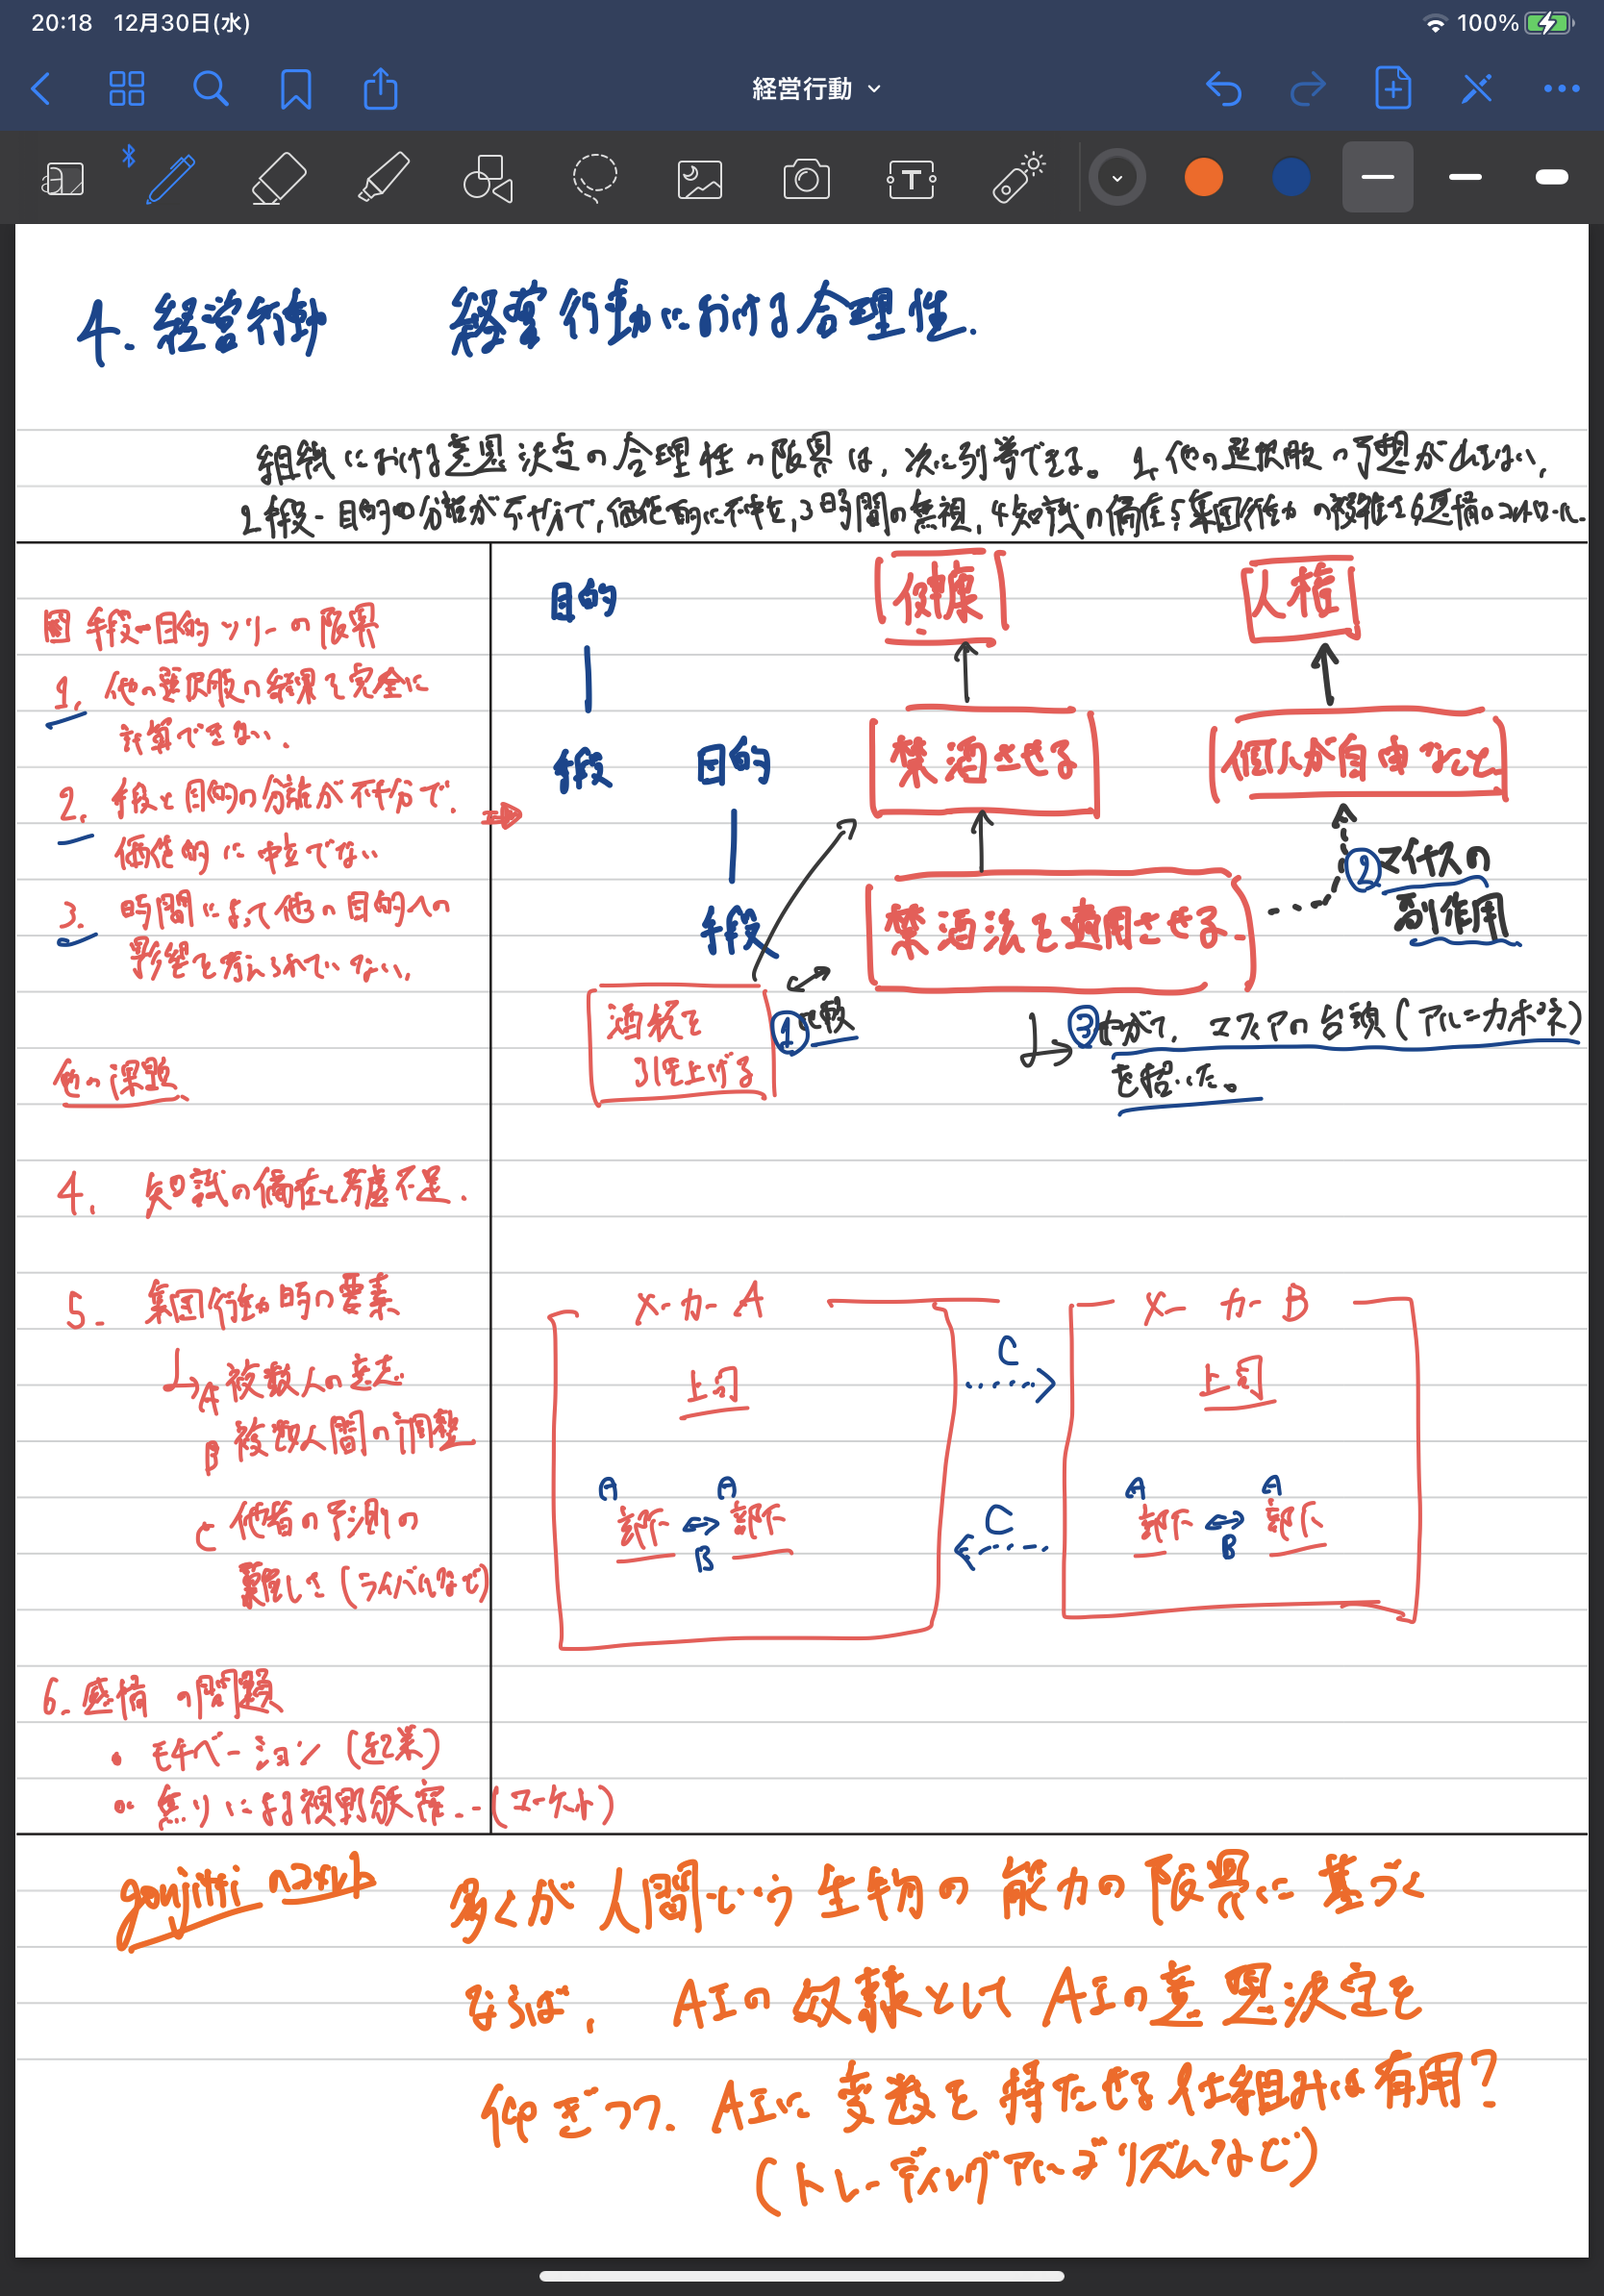 20:18 12月30日(水)
100%
経営行動
4. 経営行動 経営行動における合理性.
組織における意思決定の合理性の限界は、次に列挙できる。 1.他の選択肢の予想が出来ない、
2.手段-目的の分離が不十分で、価値的に不中立、3時間の無視、4知識の偏在、5集団行動の複雑さ、6感情のコントロール
図 手段-目的ツリーの限界
1. 他の選択肢の結果を完全に
計算できない.
2. 手段と目的の分離が不十分で.
価値的に中立でない
3. 時間によって他の目的への
影響を考えられていない.
他の課題
4. 知識の偏在と考慮不足.
5. 集団行動時の要素
A 複数人の意志
B 複数人間の調整
C 他者の予測の
難しさ (ライバルなど)
6.感情の問題
・モチベーション (起業)
・焦りによる視野狭窄 (マーケット)
目的
手段
目的
手段
健康
人権
禁酒させる
個人が自由なこと
禁酒法を適用させる
酒税を
引き上げる
①比較
②マイナスの
副作用
③やがて、マフィアの台頭 (アル=カポネ)
を招いた。
メーカーA
メーカーB
上司
上司
C
C
A A
部下 部下
B
A A
部下 部下
B
gonjitti
多くが人間という生物の能力の限界に基づく
ならば、AIの奴隷としてAIの意思決定を
仰ぎつつ、AIに変数を持たせる仕組みは有用?
(トレーディングアルゴリズムなど)